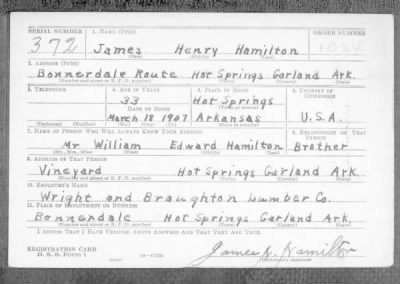 SERIAL NUMBER 1. NAME (Print) ORDER NUMBER
372 James Henry Hamilton 1024
(First) (Middle) (Last)
2. ADDRESS (Print)
Bonnerdale Route Hot Springs Garland Ark.
(Number and street or R. F. D. number) (Town) (County) (State)
3. TELEPHONE 4. AGE IN YEARS 5. PLACE OF BIRTH 6. COUNTRY OF CITIZENSHIP
33 Hot Springs
DATE OF BIRTH (Town or county)
March 18 1907 Arkansas U.S.A.
(Mo.) (Day) (Yr.) (State or country)
7. NAME OF PERSON WHO WILL ALWAYS KNOW YOUR ADDRESS 8. RELATIONSHIP OF THAT PERSON
Mr William Edward Hamilton Brother
(Mr., Mrs., Miss) (First) (Middle) (Last)
9. ADDRESS OF THAT PERSON
Vineyard Hot Springs Garland Ark.
(Number and street or R. F. D. number) (Town) (County) (State)
10. EMPLOYER'S NAME
Wright and Braughton Lumber Co.
11. PLACE OF EMPLOYMENT OR BUSINESS
Bonnerdale Hot Springs Garland Ark.
(Number and street or R. F. D. number) (Town) (County) (State)
I AFFIRM THAT I HAVE VERIFIED ABOVE ANSWERS AND THAT THEY ARE TRUE.
REGISTRATION CARD
D. S. S. FORM 1
James H. Hamilton
(Registrant's signature)